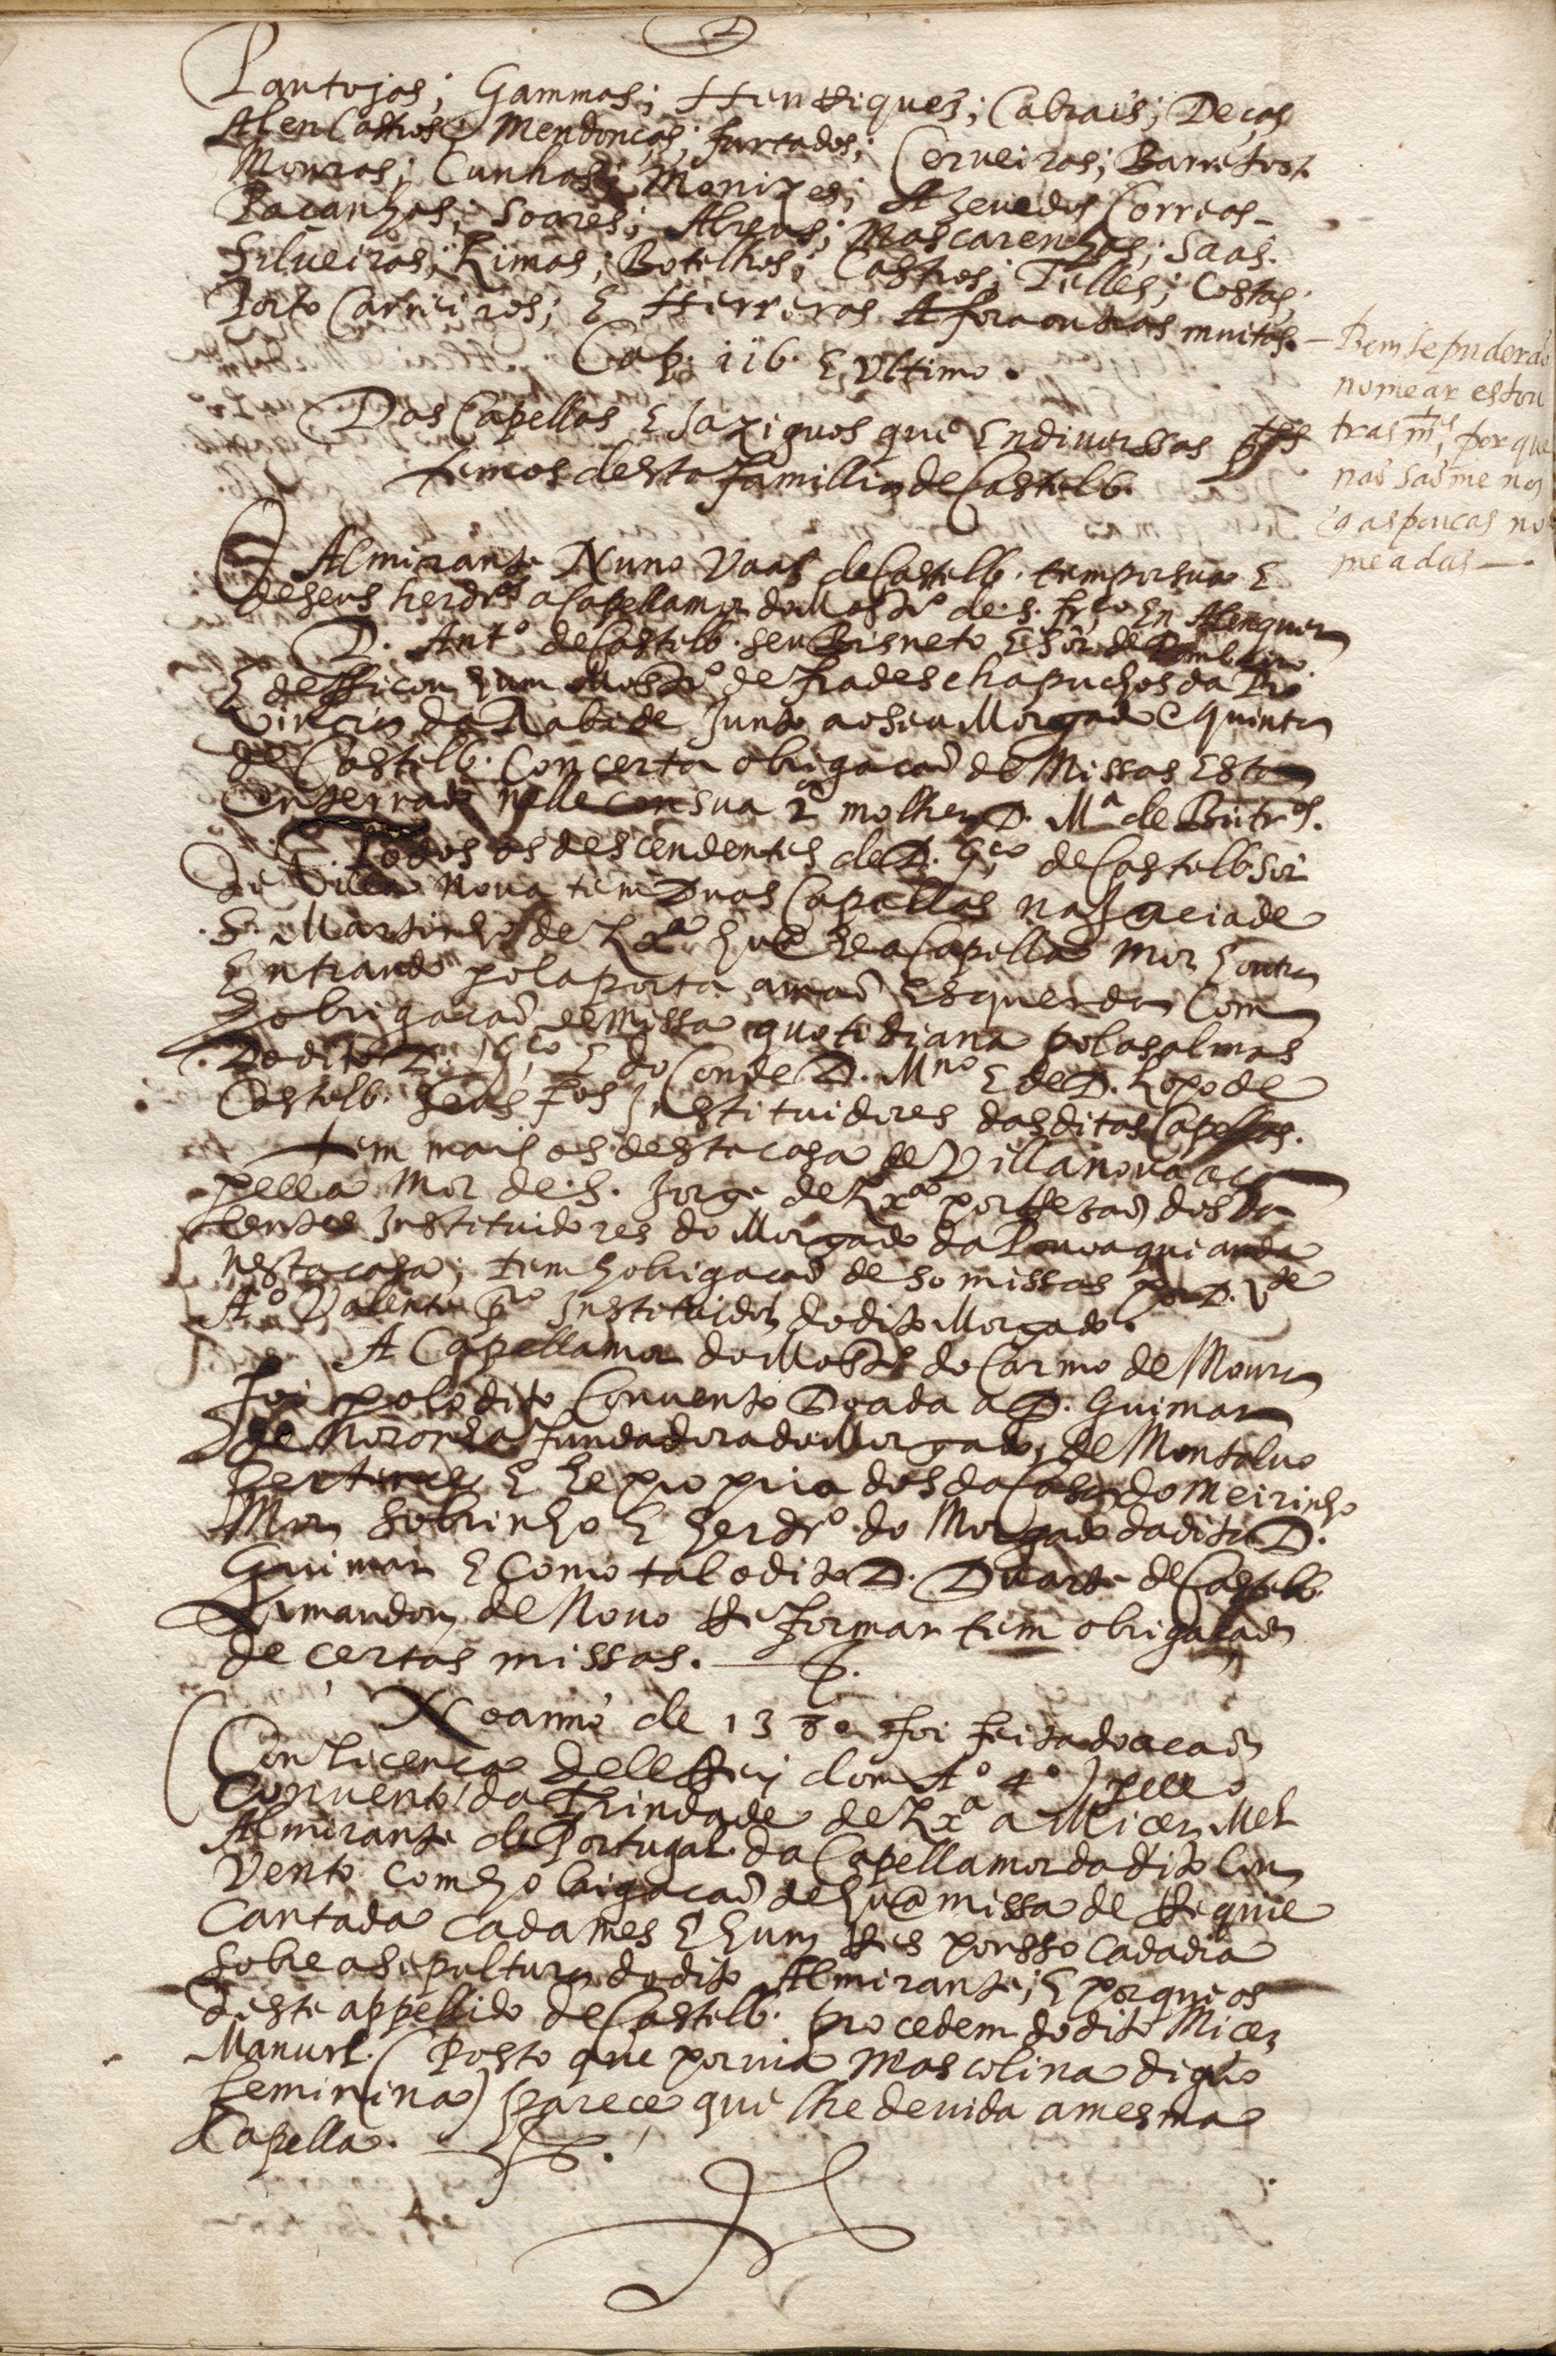 Pantojas; Gammas; Henrriques; Cabrais; Deças
Alencastros; Mendonças; furtados; Cerveiras; Barretos;
Mouras; Cunhas; Monizes; Azevedos Correas-
Paçanhas; Soares; Abreus; Mascarenhas; Saas.
Silveiras; Limas; Botelhos; Castros; Telles; Costas;
Porto Carreiros; E Herreras A fora outras muitas.
Cap. 116. E Vltimo.
Das Capellas E Jazigos que En diverssas ptes
temos desta familli de Castelb.
O Almirante Nuno Vaas de Castelb. tem por sua E
de seus herdros a Capella mor do Mostro de S. frco En Alenquer
D. Anto de Castelb. seu Bisneto E Sor de Pombeiro
Edefficou hum Mostro de frades chapuchos da Pro
vincia da Rabida Junto ao seu Morgado E quinta
de Castelb. Com certa obrigacaõ de Missas Esta
Enterrado nelle con sua 2a molher D. Ma de
Todos os descendentes de D. Gco de Castelb. Sor
de Villa Nova tem Duas Capellas na
S. Martinho de Lxa hua he a Capella mor E outra
Entrando pola porta a maõ Esquerda Com
obrigacaõ de missa quotidiana polas almas
Do dito D. Gco E do Conde D. Mno E de D. Lopo de
Castelb. seus fos Instituidores das ditas Capellas.
tem mais os desta casa de Villa nova a ca
pella mor de S. Jorge de Lxa por Resaõ dos Va
lentes Instituidores do Morgado da Povoa que anda
nesta casa; tem obrigacaõ de 50 missas
Ao Valente pro Instituidor do dito Morgado.
A Capella mor do Mostro do Carmo de Moura
foi polo dito Convento Doada a D. Guimar
de Noronha fundadora do Morgado de Montalvo
Pertence E he propria dos da Casa do Meirinho
Mor sobrinho E herdro do Morgado da dita D.
Guimar E como tal o dito D. Duarte de Castelb.
A mandou de Novo Reformar tem obrigacaõ
de certas missas.
No anno de 13 foi feita doacaõ
(Con licença delle Rey dom Ao 4o) pello
Convento da Trindade de Lxa a Micer Mel
Almirante de Portugal da Capella mor do dito Con
vento com obrigacaõ de hua missa de Requie
Cantada cada mes E hum Res cada dia
sobre a sepultura do dito Almirante; E porque os
deste appellido de Castelb. procedem do dito Micer
Manuel. (Posto que por via mascolina digo
feminina) parece que lhe devida a mesma
Capella.
Bem se puderaõ
nomear estou
tras mtas, por que
naõ saõ me nos
q as poucas no
meadas